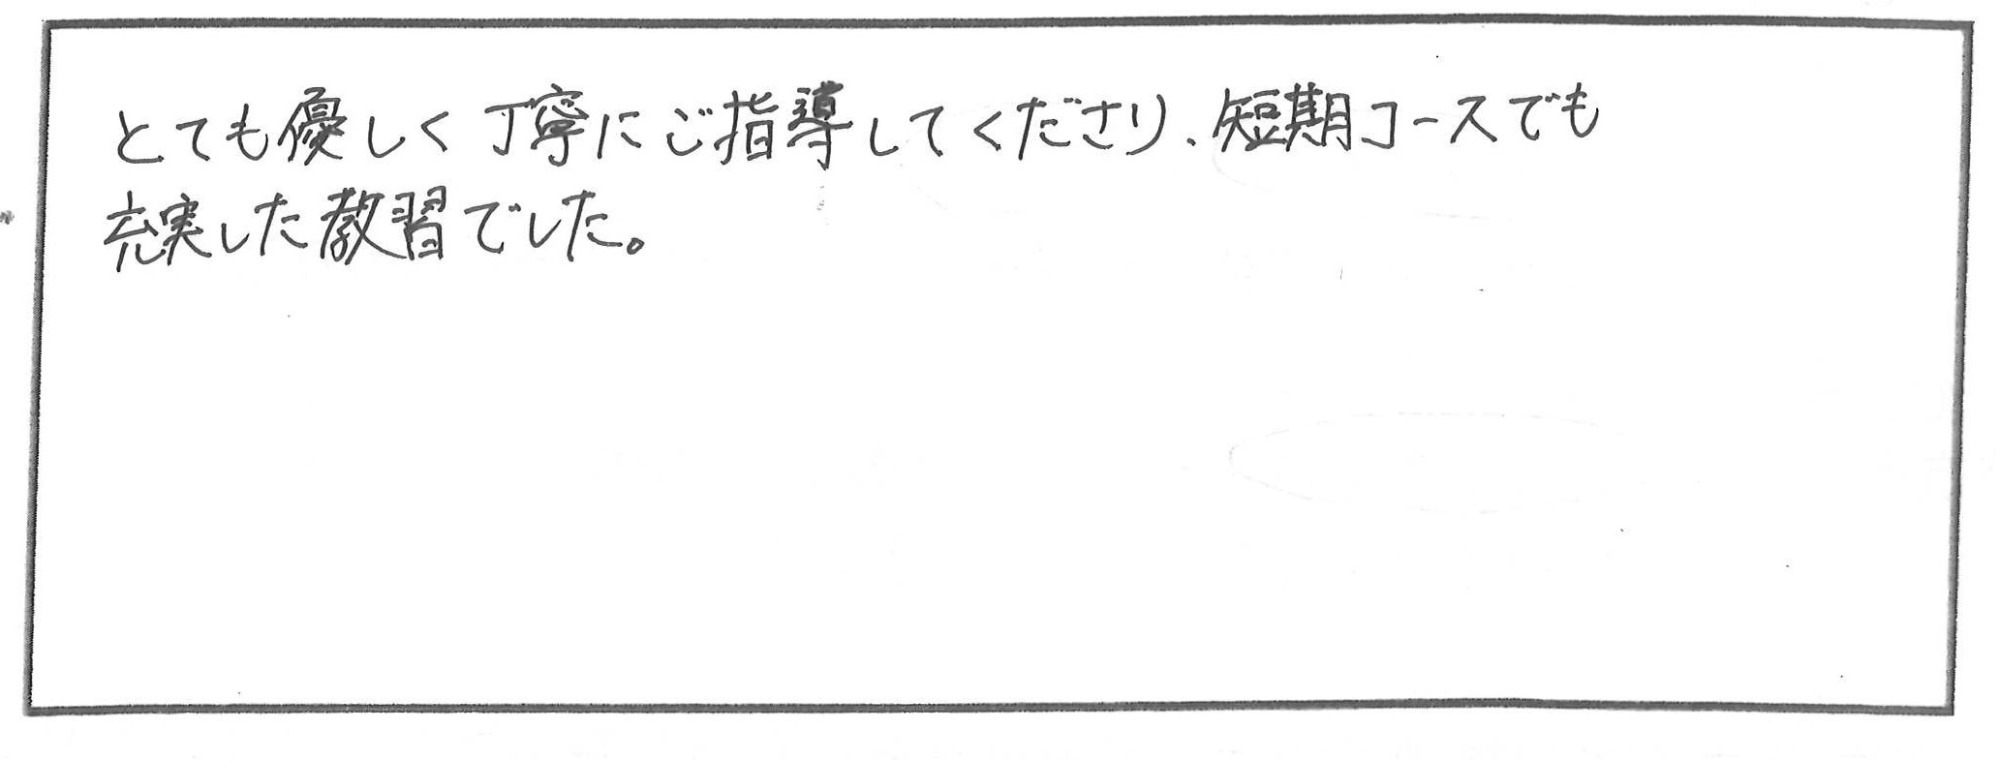 とても優しく丁寧にご指導してくださり、短期コースでも
充実した教習でした。